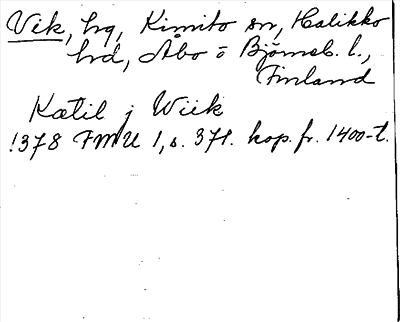 Vik, hg, Kimito sn, Halikko
hd, Åbo o Björneb. l.,
Finland
Kætil j Wiik
1378 FMU 1, s. 371. kop. fr. 1400-t.